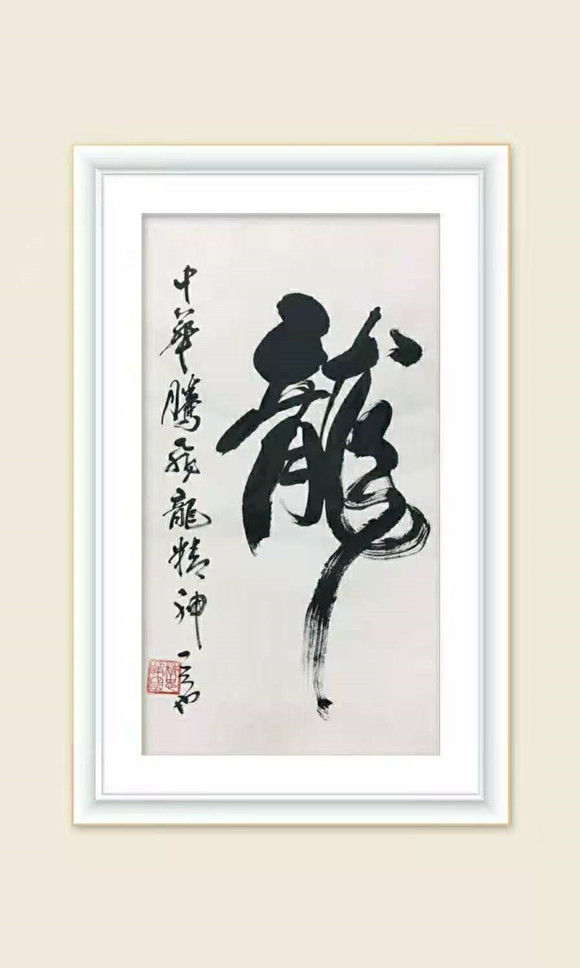 龍
中華騰飛龍精神